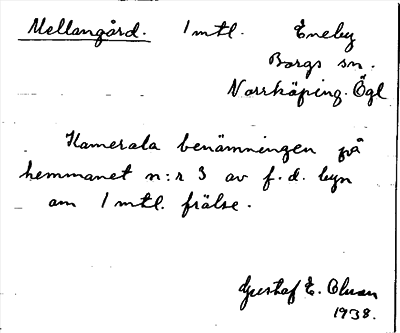 Mellangård. 1 mtl. Eneby
Borgs sn.
Norrköping. Ögl
Kamerala benämningen på
hemmanet n:r 3 av f.d. byn
om 1 mtl. frälse.
Gustaf E. Olsson
1938.